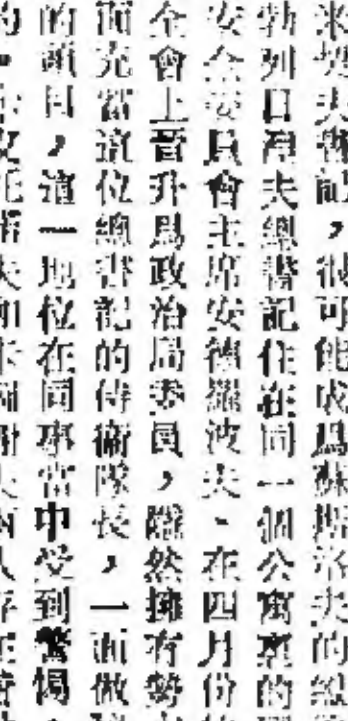 來契夫書記,很可能成爲蘇斯洛夫的繼
勃列日湼夫總書記住在同一個公寓裏的
安全委員會主席安德羅波夫、在四月份
全會上晋升爲政治局委員,隱然擁有勢
面充當這位總書記的侍衞隊長,一面做
的頭目,這一地位在同事當中受到警惕